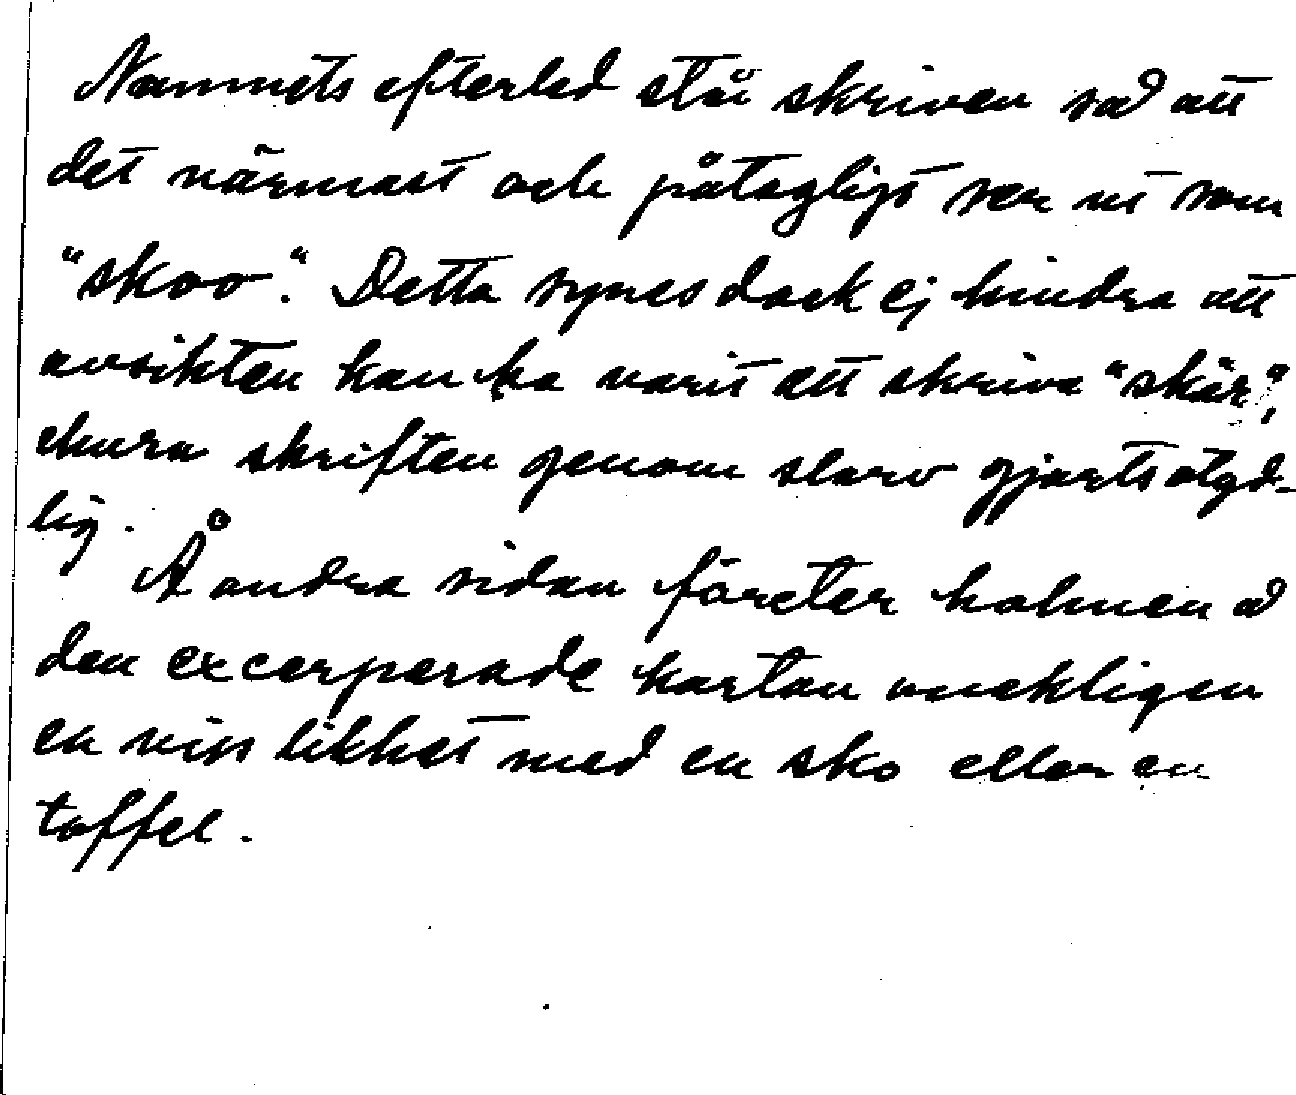 Namnets efterled står skriven så att
det närmast och påtagligt ser ut som
"skoo". Detta synes dock ej hindra att
avsikten kan ha varit att skriva "skär",
ehuru skriften genom slarv gjorts otyd-
lig.
Å andra sidan företer holmen å
den excerperade kartan onekligen
en viss likhet med en sko eller en
toffel.